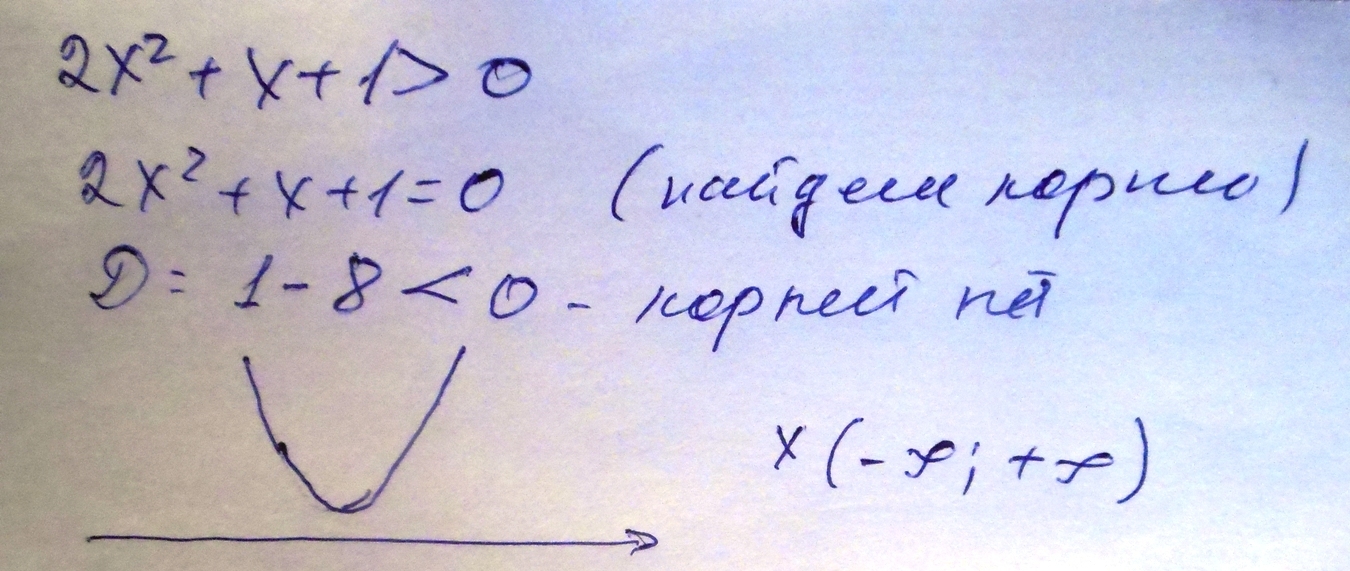 2x² + x + 1 > 0
2x² + x + 1 = 0 (найдем корни)
D = 1 - 8 < 0 - корней нет
x (-∞; +∞)